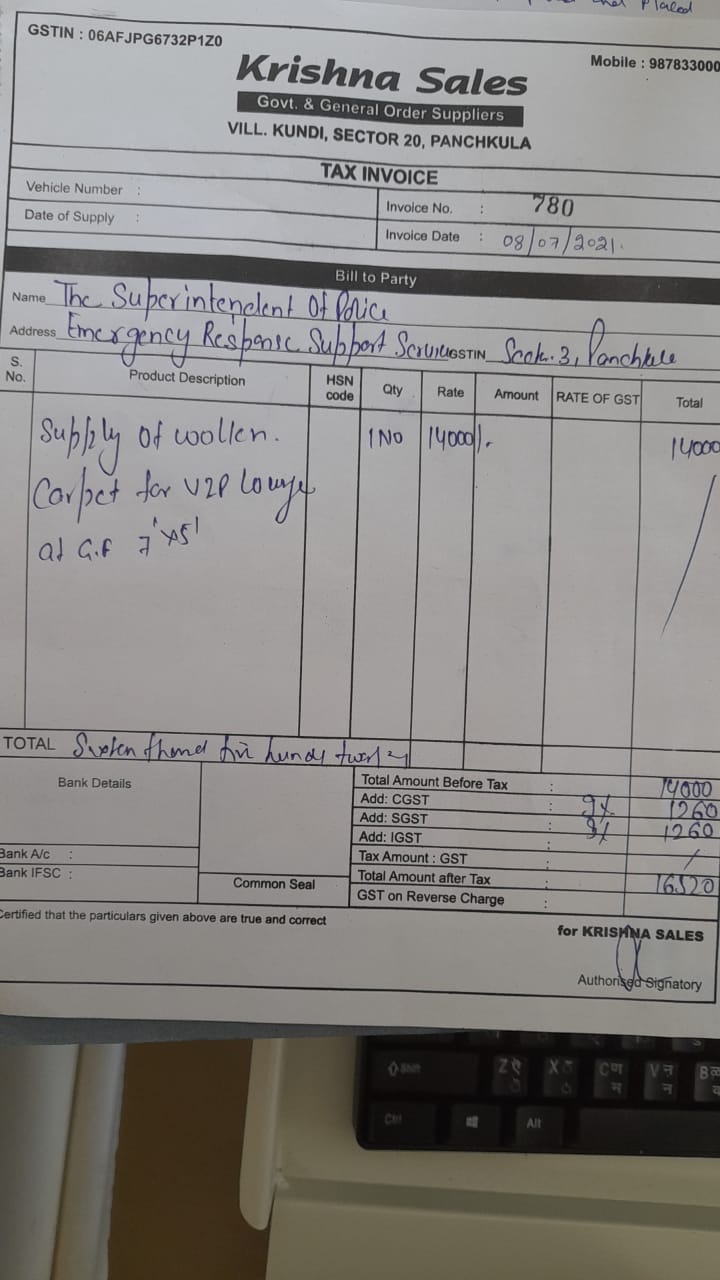 Placed
GSTIN : 06AFJPG6732P1Z0
Mobile : 987833000
Krishna Sales
Govt. & General Order Suppliers
VILL. KUNDI, SECTOR 20, PANCHKULA
TAX INVOICE
Vehicle Number :
Invoice No. : 780
Date of Supply :
Invoice Date : 08/07/2021.
Bill to Party
Name The Superintendent Of Police
Address Emergency Response Support Services GSTIN Sector. 3, Panchkula
S. No. Product Description HSN code Qty Rate Amount RATE OF GST Total
Supply of woollen. 1 No 14000/- 14000
Carpet for VIP Lounge
at G.F 7'x5'
TOTAL Sixteen thousand five hundred twenty
Bank Details
Total Amount Before Tax : 14000
Add: CGST : 9% 1260
Add: SGST : 9% 1260
Add: IGST :
Bank A/c :
Tax Amount : GST :
Bank IFSC :
Common Seal
Total Amount after Tax : 16520
GST on Reverse Charge :
Certified that the particulars given above are true and correct
for KRISHNA SALES
Authorised Signatory
Shift Z ऐ X C ण म V न B
Ctrl Alt